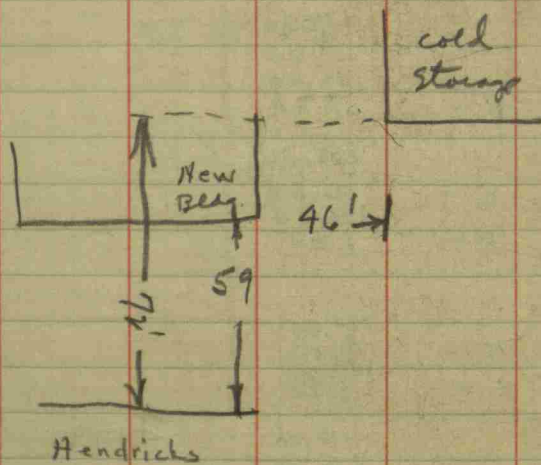 cold
Storage
New
Bldg
46'
59
Hendricks